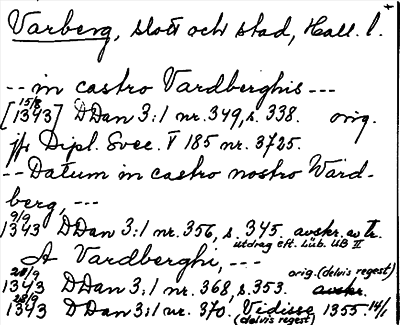 Varberg, slott och stad, Hall. l.
-- in castro Vardberghis ---
15/8
[1343] DDan 3:1 nr. 349, s. 338. orig.
jfr Dipl. Svec. V 185 nr. 3725.
-- Datum in castro nostro Ward-
berg, ---
9/9
1343 DDan 3:1 nr. 356, s. 345. avskr. av tr.
utdrag eft. Lüb. UB II
A Vardberghi, ---
orig. (delvis regest)
28/9
1343 DDan 3:1 nr. 368, s. 353. avskr.
28/9
1343 DDan 3:1 nr. 370. Vidisse 1355 14/1
(delvis regest)